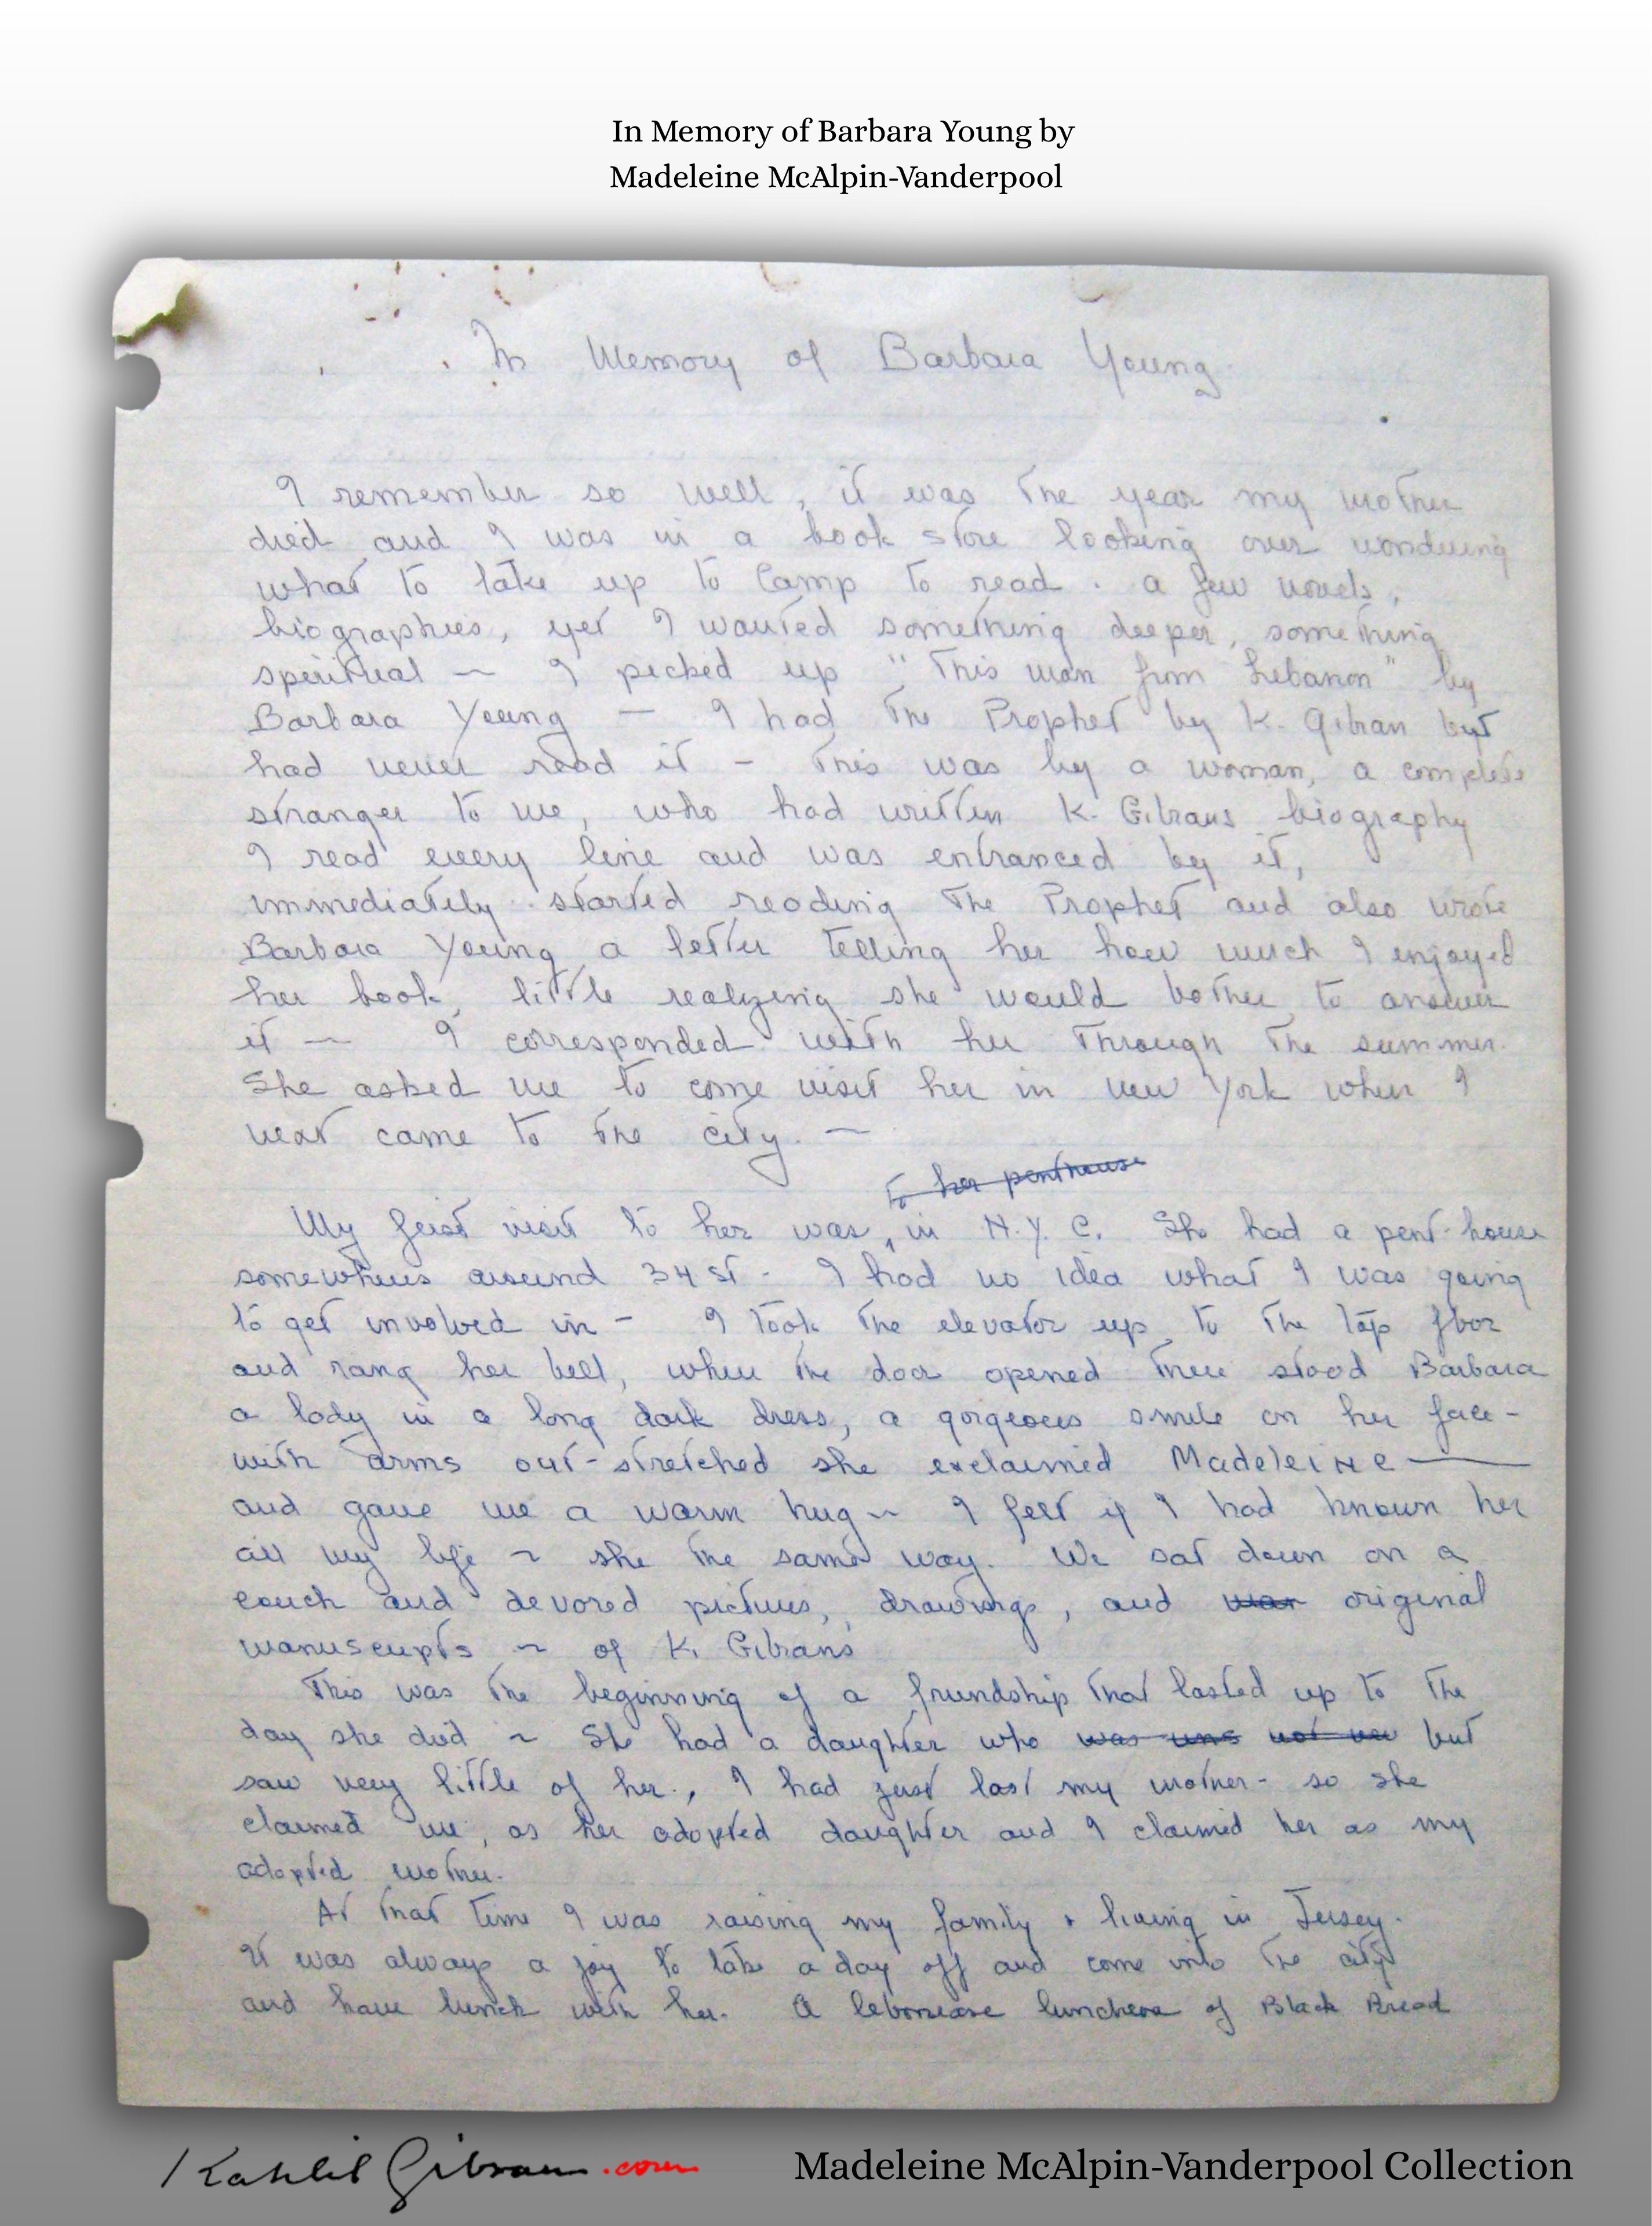 In Memory of Barbara Young by
Madeleine McAlpin-Vanderpool
In Memory of Barbara Young
I remember so well, it was the year my mother
died and I was in a book store looking over wondering
what to take up to Camp to read. a few novels,
biographies, yet I wanted something deeper, something
spiritual — I picked up "This man from Lebanon" by
Barbara Young — I had the Prophet by K. Gibran but
had never read it - This was by a woman, a complete
stranger to me, who had written K. Gibrans biography
I read every line and was entranced by it,
immediately started reading The Prophet and also wrote
Barbara Young a letter telling her how much I enjoyed
her book, little realizing she would bother to answer
it — I corresponded with her through the summer.
She asked me to come visit her in New York when I
next came to the city. —
to her penthouse
My first visit to her was, in N.Y.C. She had a pent-house
somewheres around 34 St - I had no idea what I was going
to get involved in - I took the elevator up to the top floor
and rang her bell, when the door opened there stood Barbara
a lady in a long dark dress, a gorgeous smile on her face -
with arms out-stretched she exclaimed Madeleine —
and gave me a warm hug ~ I felt if I had known her
all my life ~ she the same way. We sat down on a
couch and devored pictures, drawings, and was original
manuscripts ~ of K. Gibrans
This was the beginning of a friendship that lasted up to the
day she died ~ She had a daughter who was but
saw very little of her., I had just lost my mother - so she
claimed me, as her adopted daughter and I claimed her as my
adopted mother.
At that time I was raising my family + living in Jersey.
It was always a joy to take a day off and come into the city
and have lunch with her. A luncheon of Black Bread
Kahlil Gibran.com
Madeleine McAlpin-Vanderpool Collection